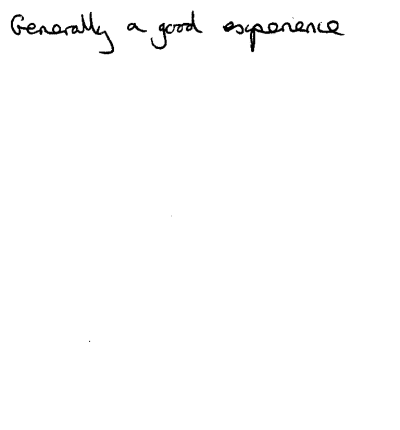 Generally a good experience